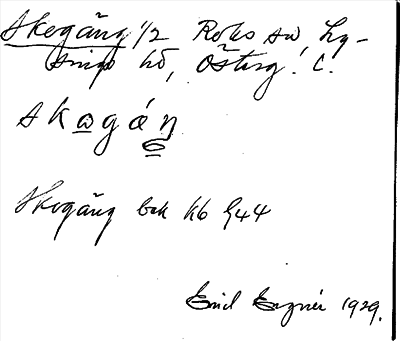 Skogäng 1/2 Roks sn, Ly-
sings hd, Österg. l.
skogäŋ
Skogäng bek kb
Emil Enger 1929.